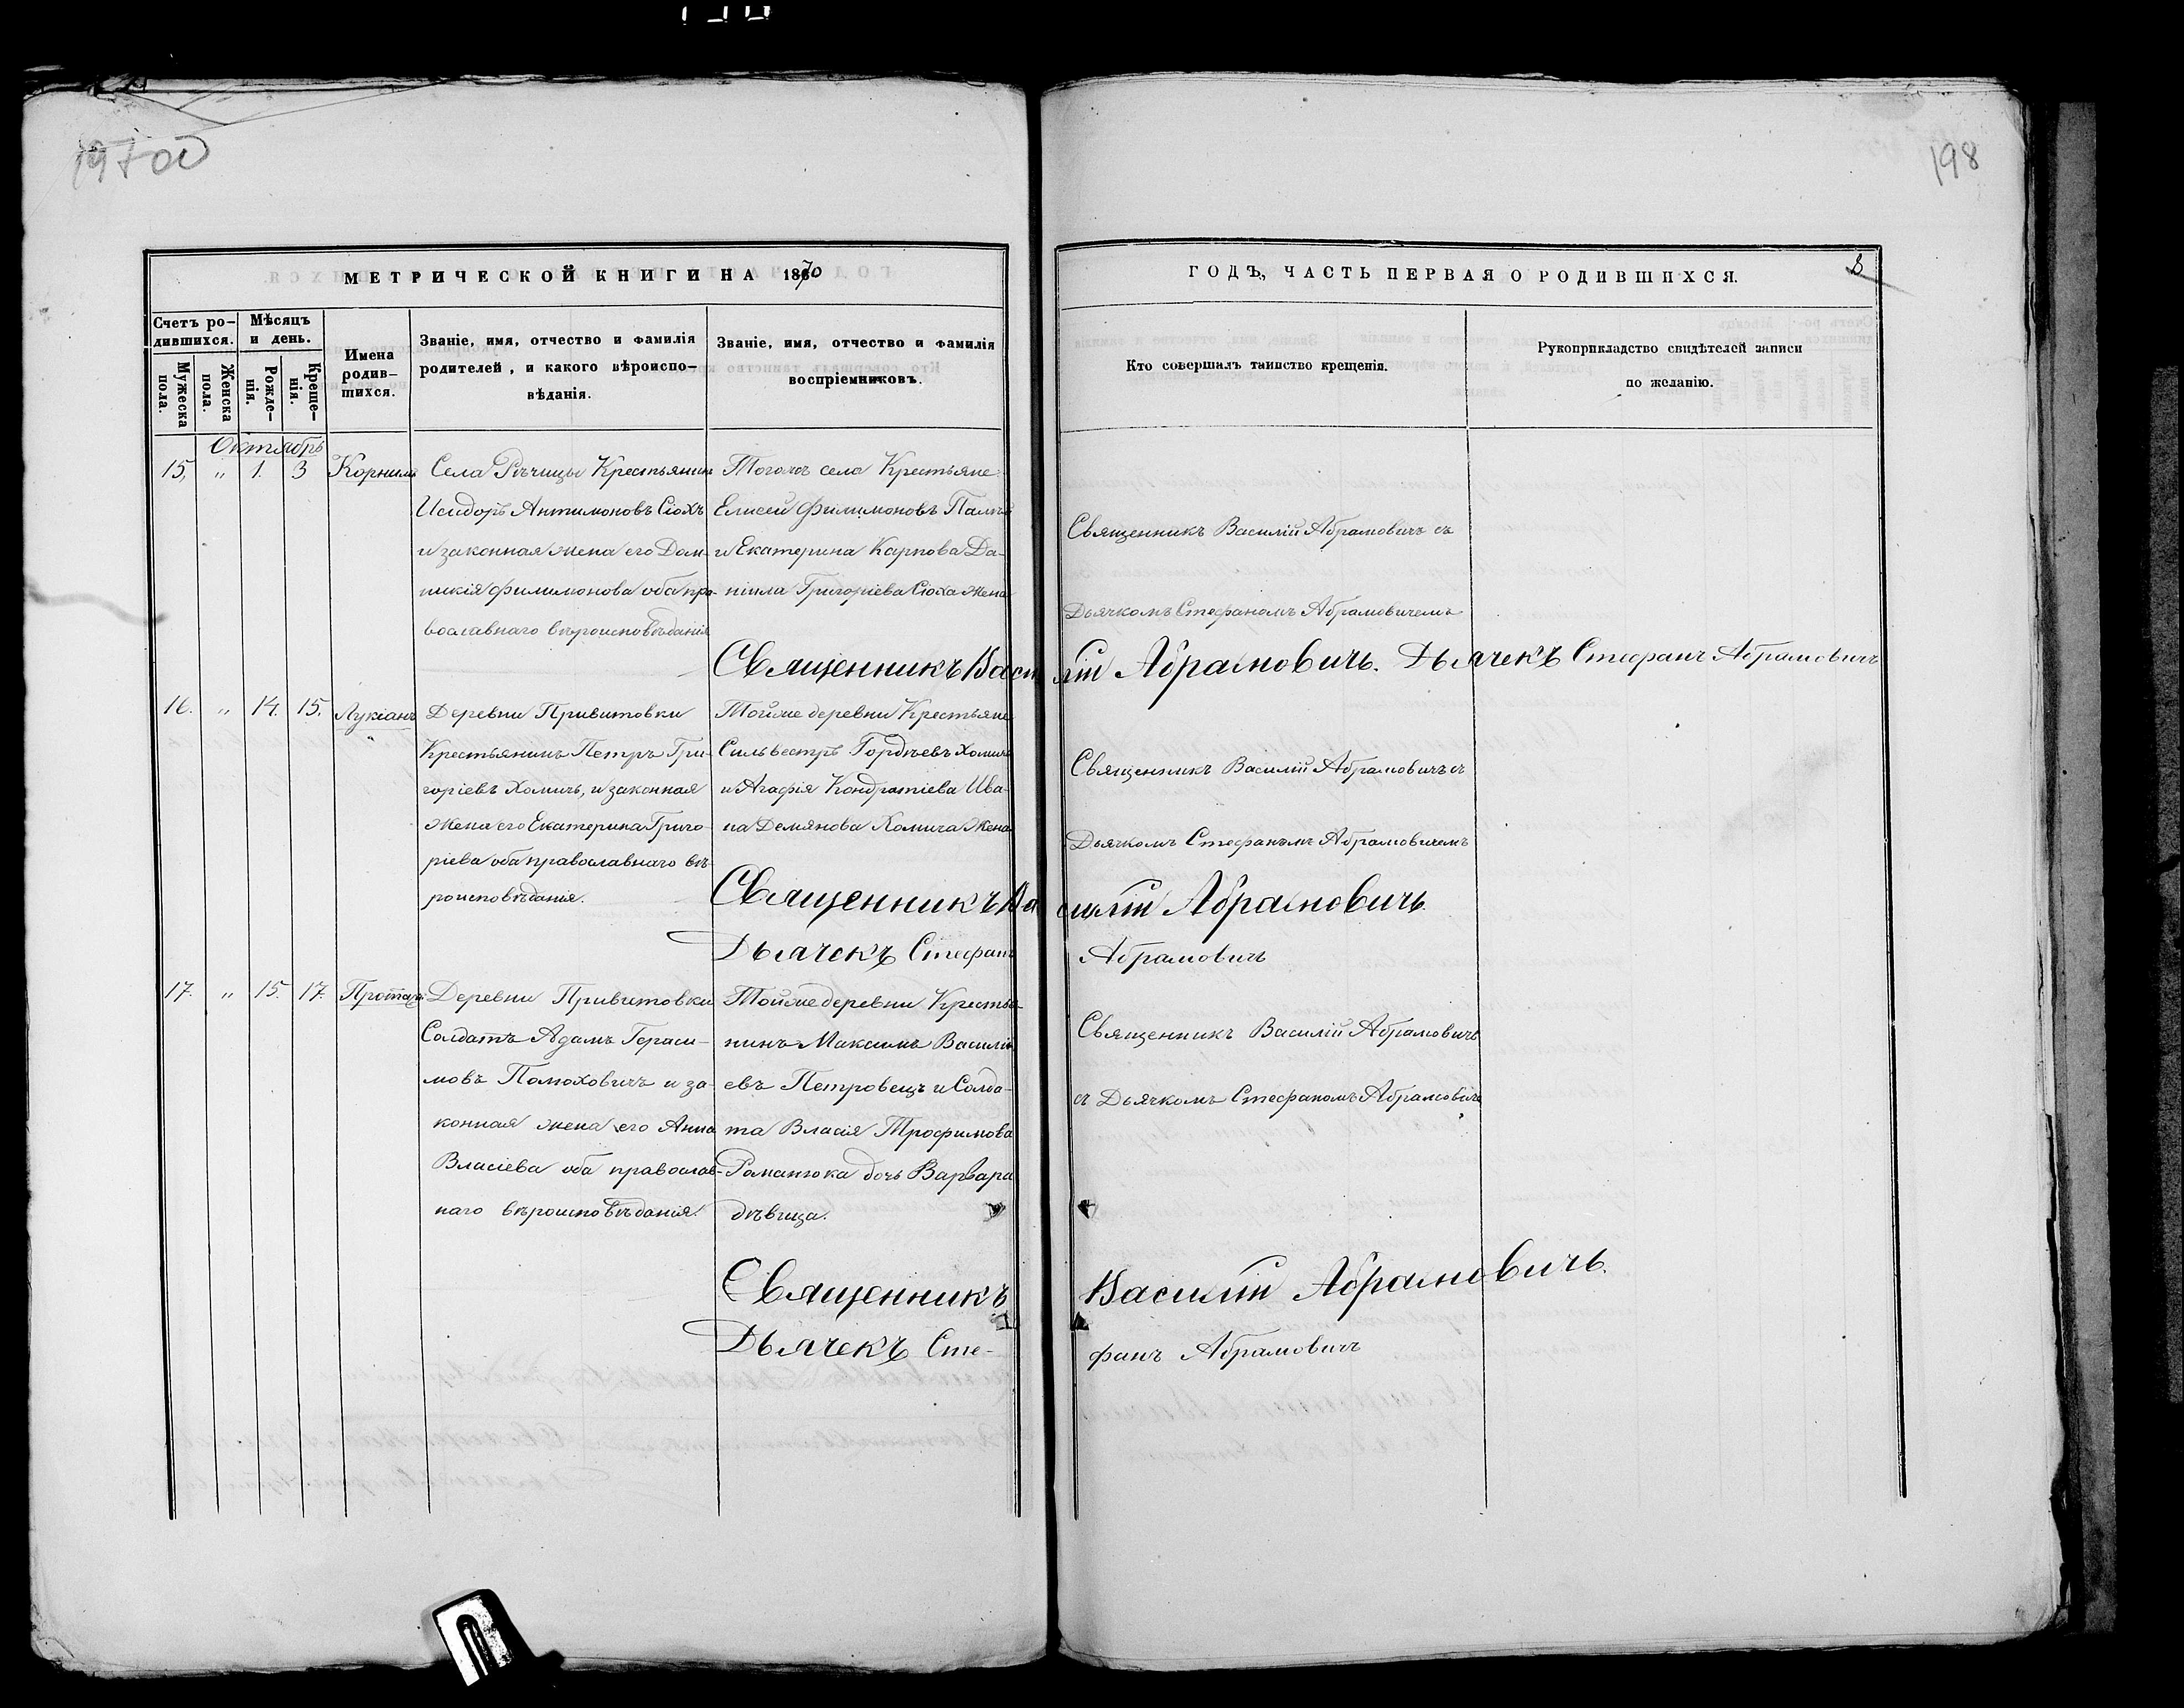 197 об
198
МЕТРИЧЕСКОЙ КНИГИ НА 1870
ГОДЪ, ЧАСТЬ ПЕРВАЯ О РОДИВШИХСЯ.
8
Счетъ ро-
дившихся.
Мужеска
пола.
Женска
пола.
Мѣсяцъ
и день.
Рожде-
нія.
Креще-
нія.
Имена
родив-
шихся.
Званіе, имя, отчество и фамилія
родителей, и какого вѣроиспо-
вѣданія.
Званіе, имя, отчество и фамилія
воспріемниковъ.
Кто совершалъ таинство крещенія.
Рукоприкладство свидѣтелей записи
по желанію.
Октябрь
15, " 1. 3 Корнилій
Села Рѣчицы Крестьянинъ
Исидоръ Антимоновъ Сіохъ
и законная жена его Дом-
никія Филимонова оба пра-
вославнаго вѣроисповѣданія
Тогожъ села Крестьяне
Елисей Филимоновъ
и Екатерина Карпова Да-
ніила Григоріева Сіоха жена
Священникъ Василій Абрамовичъ съ
Дьячкомъ Стефаномъ Абрамовичемъ
Священникъ Василій Абрамовичь. Дьячекъ Стефанъ Абрамовичъ
16. " 14. 15. Лукіанъ
Деревни Привитовки
Крестьянинъ Петръ Гри-
горіевъ Хомичъ, и законная
жена его Екатерина Григо-
ріева оба православнаго вѣ-
роисповѣданія.
Тойже деревни Крестьяне
Сильвестръ Гордѣевъ Хомичъ
и Агафія Кондратіева Ива-
на Демянова Хомича жена
Священникъ Василій Абрамовичъ съ
Дьячкомъ Стефаномъ Абрамовичемъ
Священникъ Василій Абрамовичь
Дьячекъ Стефанъ Абрамовичъ
17. " 15. 17. Протасій
Деревни Привитовки
Солдатъ Адамъ Гераси-
мовъ Полюховичъ и за-
конная жена его Анна
Власіева оба православ-
наго вѣроисповѣданія.
Тойже деревни Крестья-
нинъ Максимъ Василі-
евъ Петровецъ и Солда-
та Власія Трофимова
Романюка дочь Варвара
дѣвица.
Священникъ Василій Абрамовичъ
съ Дьячкомъ Стефаномъ Абрамовичемъ
Священникъ Василій Абрамовичь.
Дьячекъ Сте- фанъ Абрамовичъ